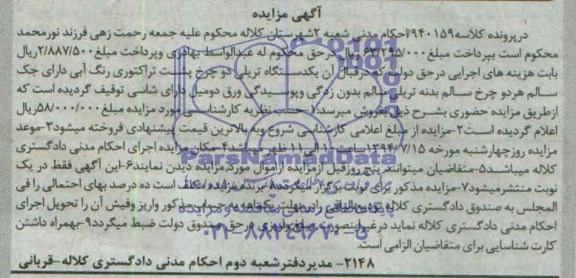 آگهی مزایده
درپرونده کلاسه۹۴۰۱۵۹/احکام مدنی شعبه ۲شهرستان کلاله محکوم علیه جمعه رحمت زهی فرزند نورمحمد
محکوم است بپرداخت مبلغ۶۳/۲۹۵/۰۰۰ریال درحق محکوم له عبدالواسط بهادری وپرداخت مبلغ۲/۸۸۷/۵۰۰ریال
بابت هزینه های اجرایی درحق دولت که درقبال آن یکدستگاه تریلی دو چرخ پشت تراکتوری رنگ آبی دارای جک
سالم هردو چرخ سالم بدنه تریلی سالم بدون زدگی وپوسیدگی ورق دومیل دارای شاسی توقیف گردیده است که
ازطریق مزایده حضوری بشرح ذیل بفروش میرسد.۱-حسب نظریه کارشناسی مورد مزایده مبلغ۵۸/۰۰۰/۰۰۰ریال
اعلام گردیده است۲-مزایده از مبلغ اعلامی کارشناسی شروع وبه بالاترین قیمت پیشنهادی فروخته میشود۳-موعد
مزایده روزچهارشنبه مورخه ۱۳۹۴/۷/۱۵ساعت ۱۰الی۱۱ ظهر میباشد۴-مکان مزایده اجرای احکام مدنی دادگستری
کلاله میباشد۵-متقاضیان میتوانند پنج روزقبل ازمزایده ازاموال مورد مزایده دیدن نمایند۶-این آگهی فقط در یک
نوبت منتشرمیشود۷-مزایده مذکور برای نوبت برگزار میگردد۸-برنده مزایده مکلف است ده درصد بهای احتمالی را فی
المجلس به صندوق دادگستری کلاله تودیع والباقی را درمهلت یکماهه به حساب مذکور واریز وفیش آن را تحویل اجرای
احکام مدنی دادگستری کلاله نماید درغیراینصورت مبلغ واریزی درحق صندوق دولت ضبط میگردد۹-بهمراه داشتن
کارت شناسایی برای متقاضیان الزامی است.
۲۱۴۸- مدیردفترشعبه دوم احکام مدنی دادگستری کلاله-قربانی
ParsNamadData
۰۲۱-۸۸۳۴۹۶۷۰-۵